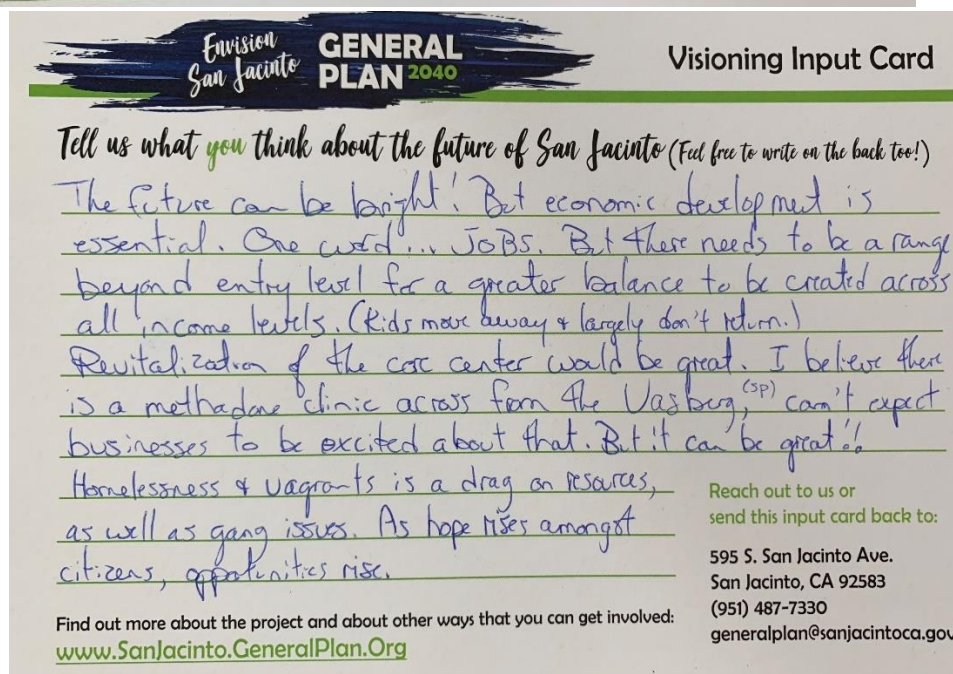 Envision
San Jacinto
GENERAL
PLAN 2040
Visioning Input Card
Tell us what you think about the future of San Jacinto (Feel free to write on the back too!)
The future can be bright! But economic development is
essential. One word... JOBS. But there needs to be a range
beyond entry level for a greater balance to be created across
all income levels. (Kids move away & largely don't return.)
Revitalization of the core center would be great. I believe there
is a methadone clinic across from the Vasberg, (sp) can't expect
businesses to be excited about that. But it can be great!!
Homelessness & vagrants is a drag on resources,
as well as gang issues. As hope rises amongst
citizens, oppotunities rise.
Reach out to us or
send this input card back to:
595 S. San Jacinto Ave.
San Jacinto, CA 92583
(951) 487-7330
generalplan@sanjacintoca.gov
Find out more about the project and about other ways that you can get involved:
www.SanJacinto.GeneralPlan.Org